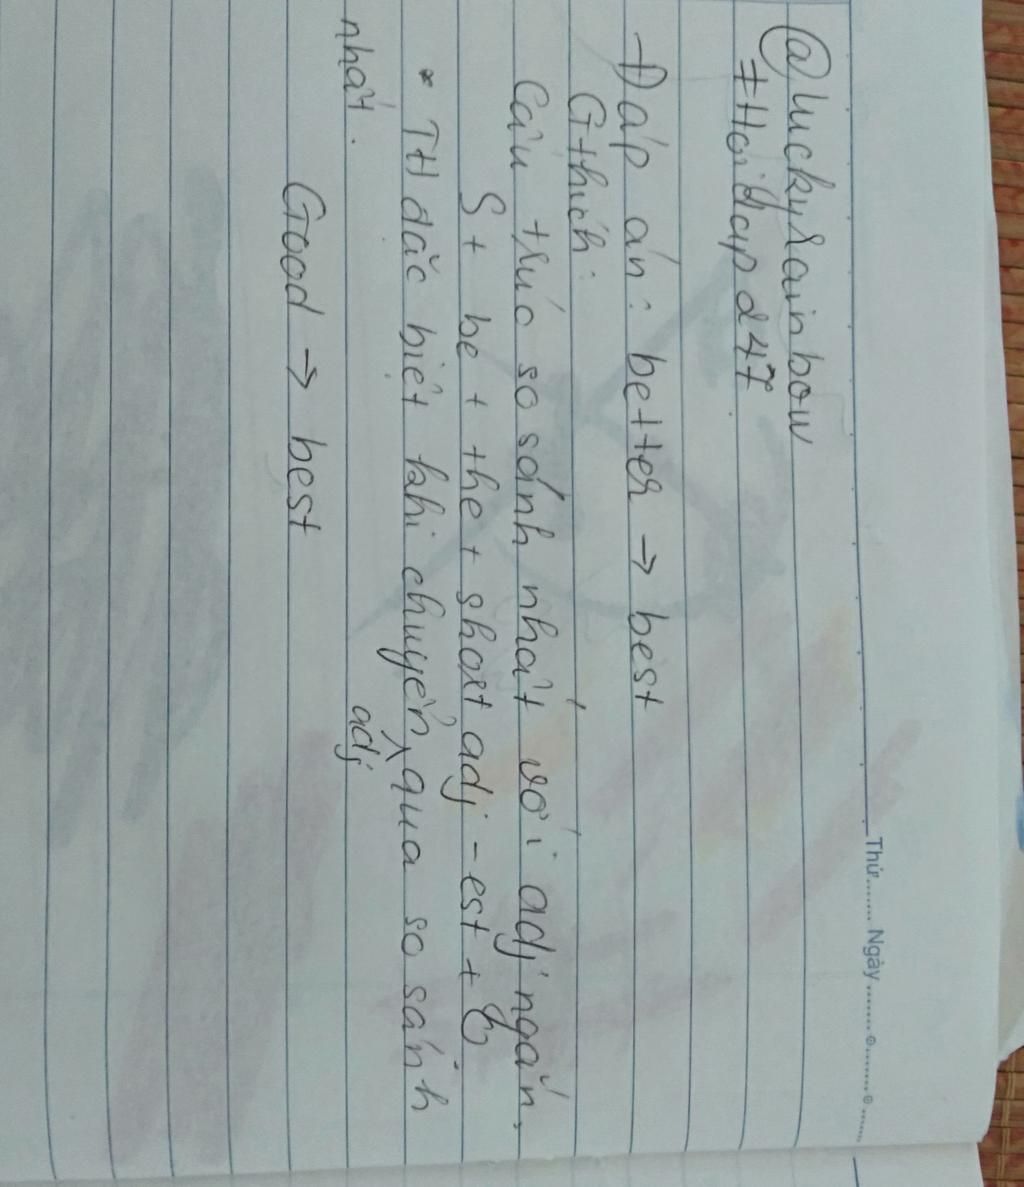 Thứ........ Ngày............
@luckyrainbow
#Hoidap247
Đáp án: better → best
Gthích:
Cấu trúc so sánh nhất với adj ngắn,
S + be + the + short adj - est +
* TH đặc biệt khi chuyển adj qua so sánh
nhất.
Good → best